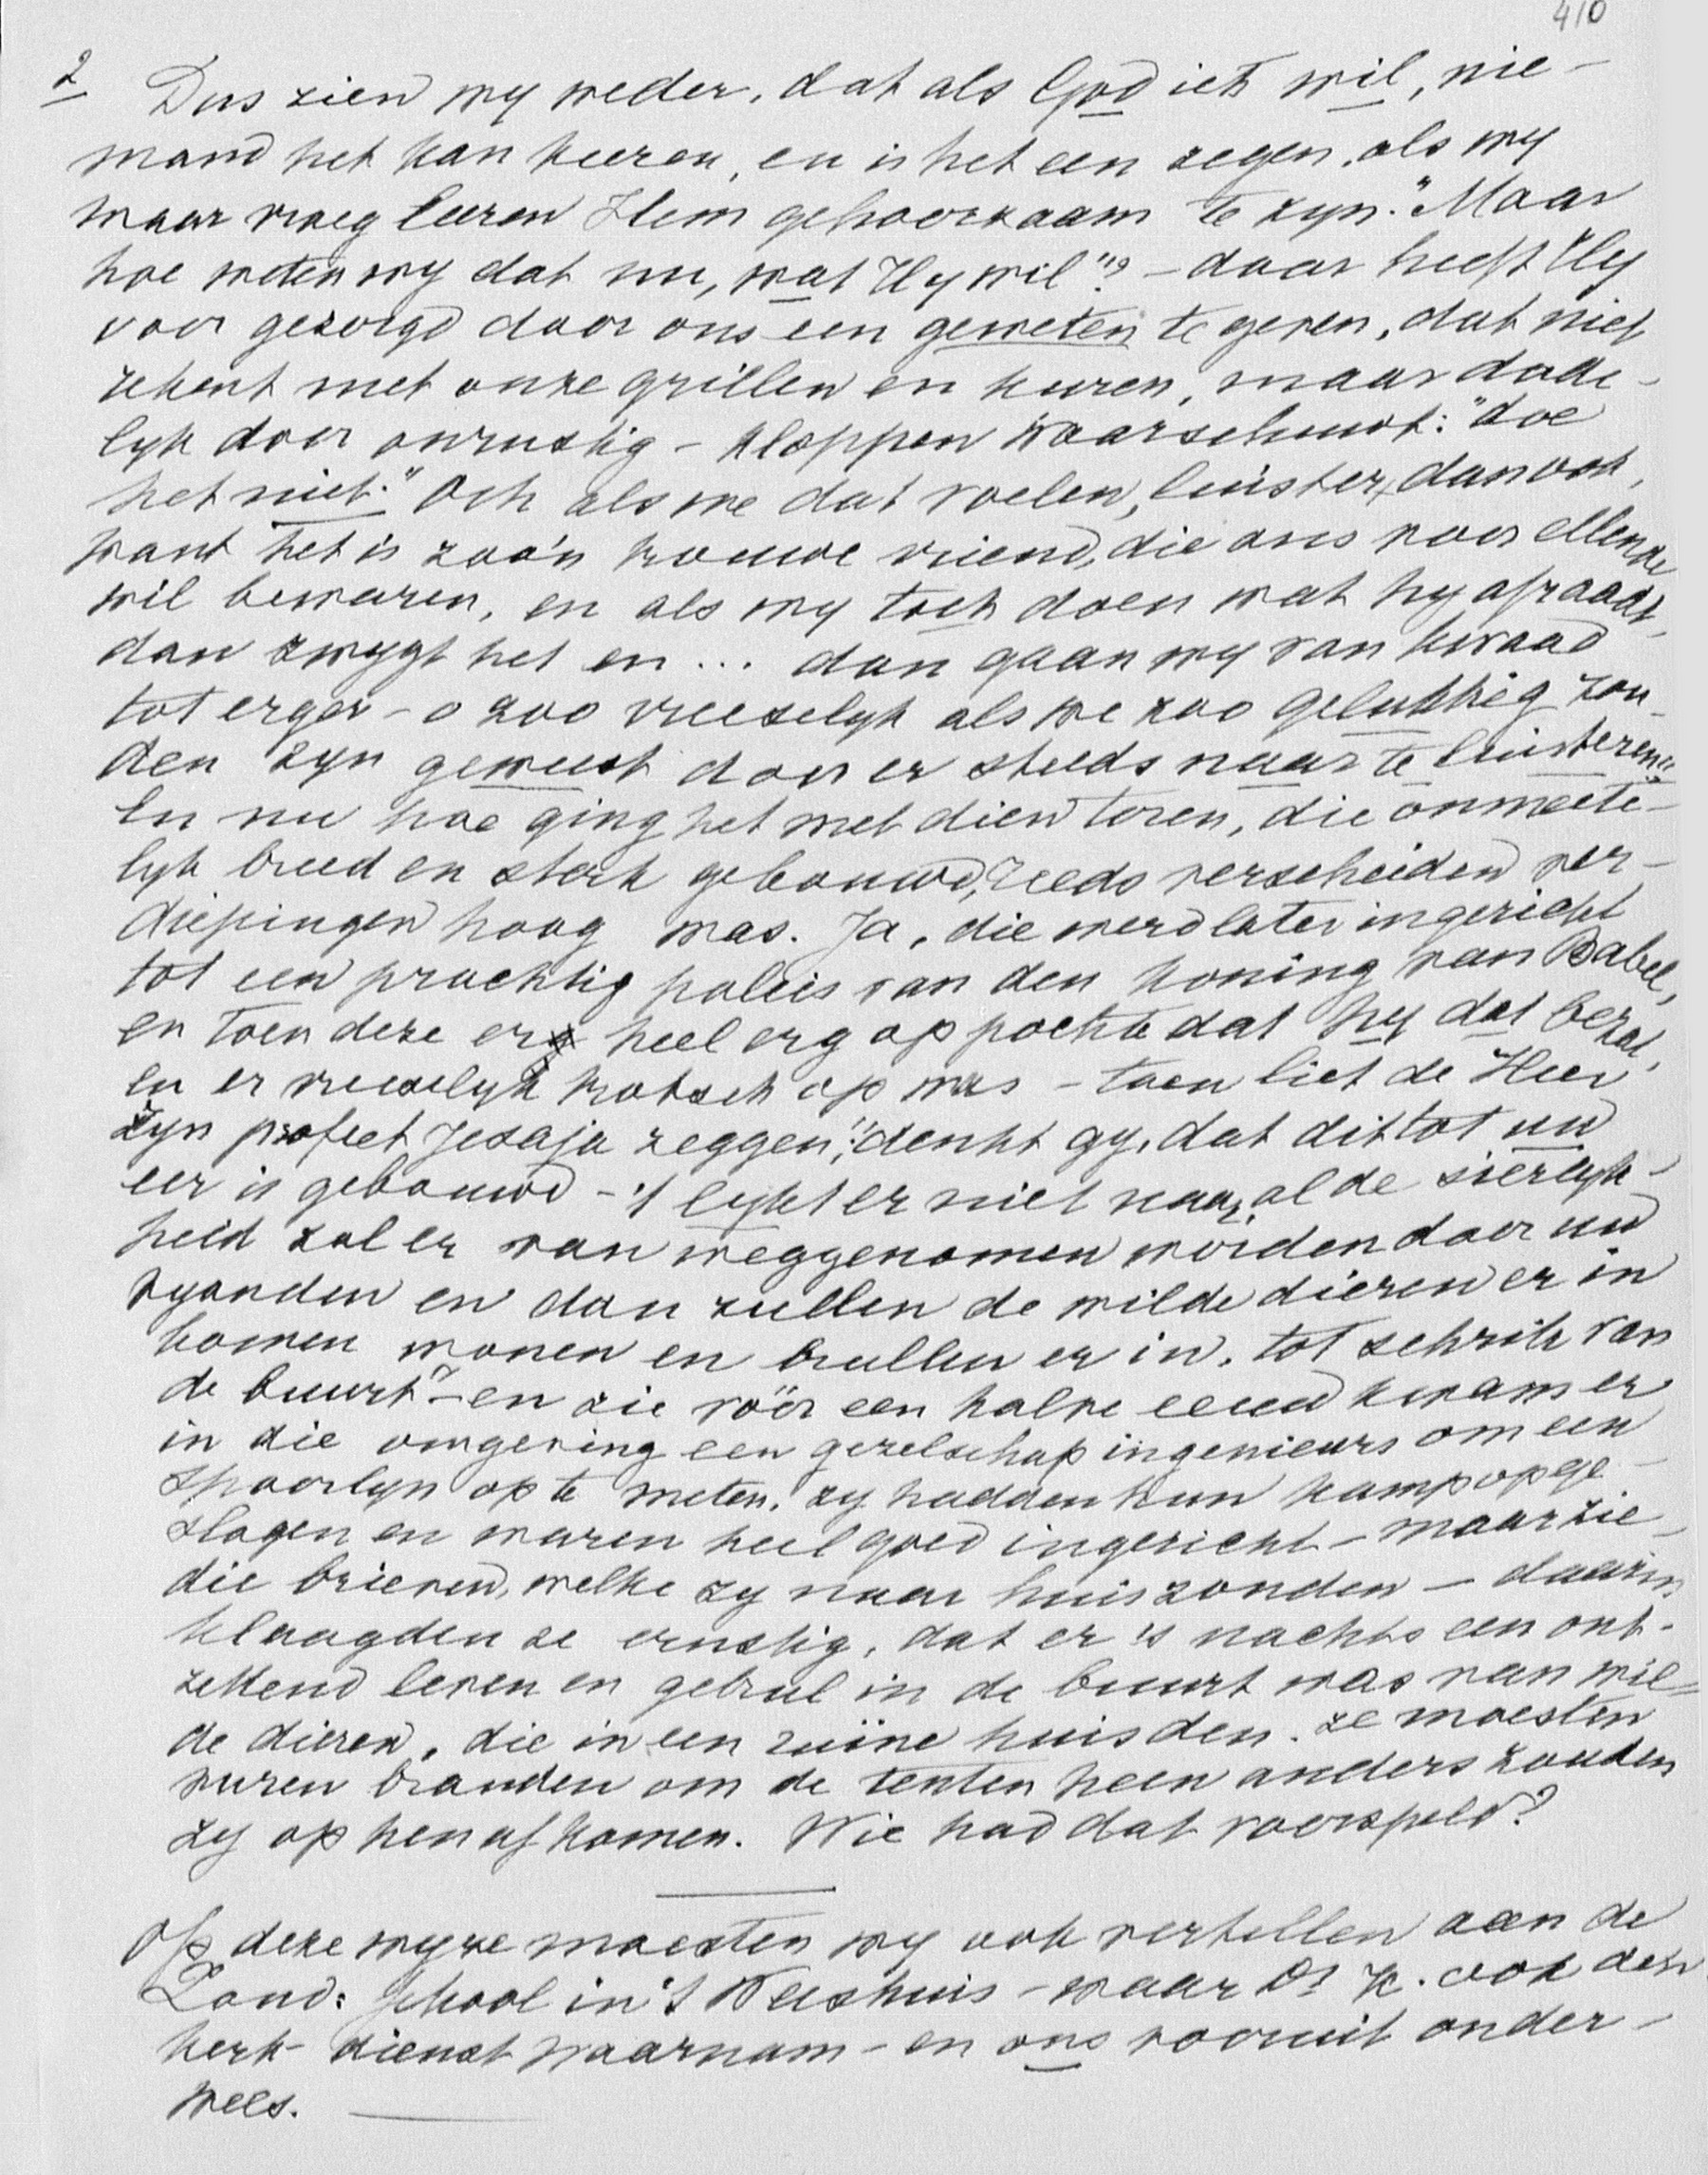 410
2 Dus zien wy weder, dat als God iets wil, nie-
mand het kan keeren, en is het een zegen, als wy
maar vroeg leeren Hem gehoorzaam te zyn. "Maar
hoe weten wy dat nu, wat Hy wil"? - daar heeft Hy
voor gezorgd door ons een geweten te geven, dat niet
rekent met onze grillen en kuren, maar dade-
lyk door onrustig - kloppen waarschuwt: "doe
het niet." Och als we dat voelen, luister dan ook,
want het is zoo'n trouwe vriend, die ons voor ellende
wil bewaren, en als wy toch doen wat hy afraadt,
dan zwygt het en ... dan gaan wy van kwaad
tot erger - o zoo vreeselyk als we zoo gelukkig zou-
den zyn geweest door er steeds naar te luisteren!!
En nu hoe ging het met dien toren, die onmete-
lyk breed en sterk gebouwd, reeds verscheiden ver-
diepingen hoog was. Ja, die werd later ingericht
tot een prachtig paleis van den koning van Babel,
en toen deze er heel erg op pochte dat hy dat bezat,
en er vreeselyk trotsch op was - toen liet de Heer
zyn profeet Jesaja zeggen: "denkt gy, dat dit tot uw
eer is gebouwd - 't lykt er niet naar, al de sierlyk-
heid zal er van weggenomen worden door uw
vyanden en dan zullen de wilde dieren er in
komen wonen en brullen er in, tot schrik van
de buurt" - en zie vóór een halve eeuw kwam er
in die omgeving een gezelschap ingenieurs om een
spoorlyn op te meten, zy hadden hun kamp opge-
slagen en waren heel goed ingericht - maar zie -
die brieven, welke zy naar huis zonden - daarin
klaagden ze ernstig, dat er 's nachts een ont-
zettend leven en gebrul in de buurt was van wil=
de dieren, die in een ruïne huisden. ze moesten
vuren branden om de tenten heen anders zouden
zy op hen af komen. Wie had dat voorspeld?
Op deze wyze moesten wy ook vertellen aan de
Zond: School in 't Weeshuis - waar Ds K. ook den
kerk-dienst waarnam - en ons vooruit onder-
wees.